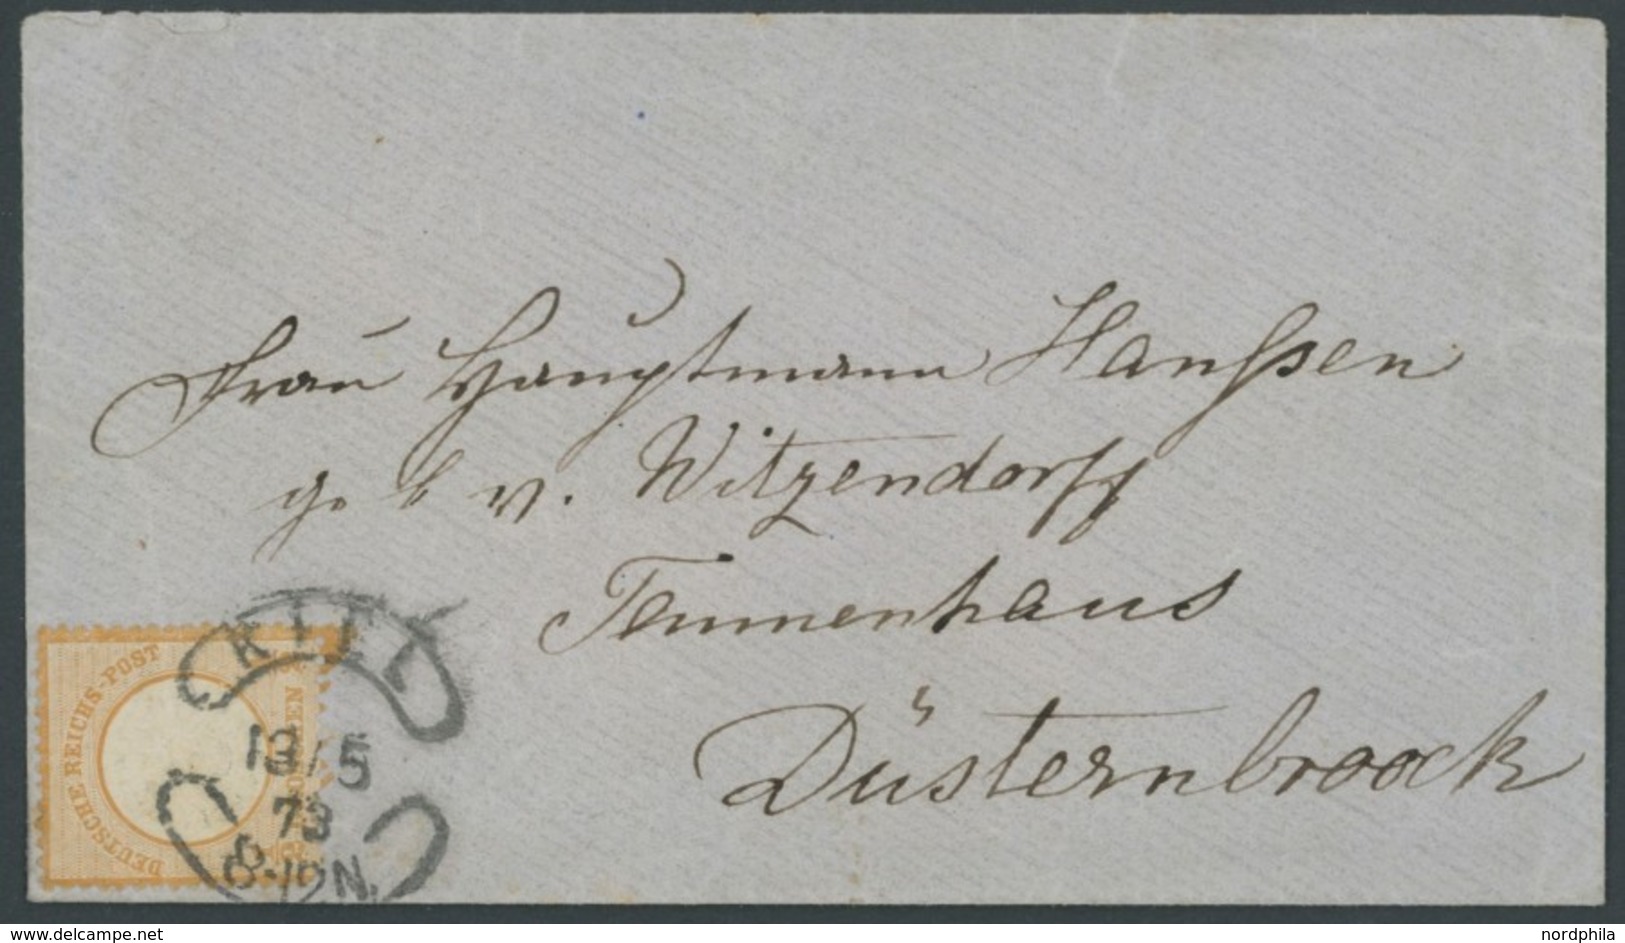 Frau Hauptmann Hanssen
geb v. Witzendorff
Tannenhaus
Düsternbroock
KIEL
13/5
73
8-12N.
DEUTSCHE REICHS-POST
www.delcampe.net
nordphila